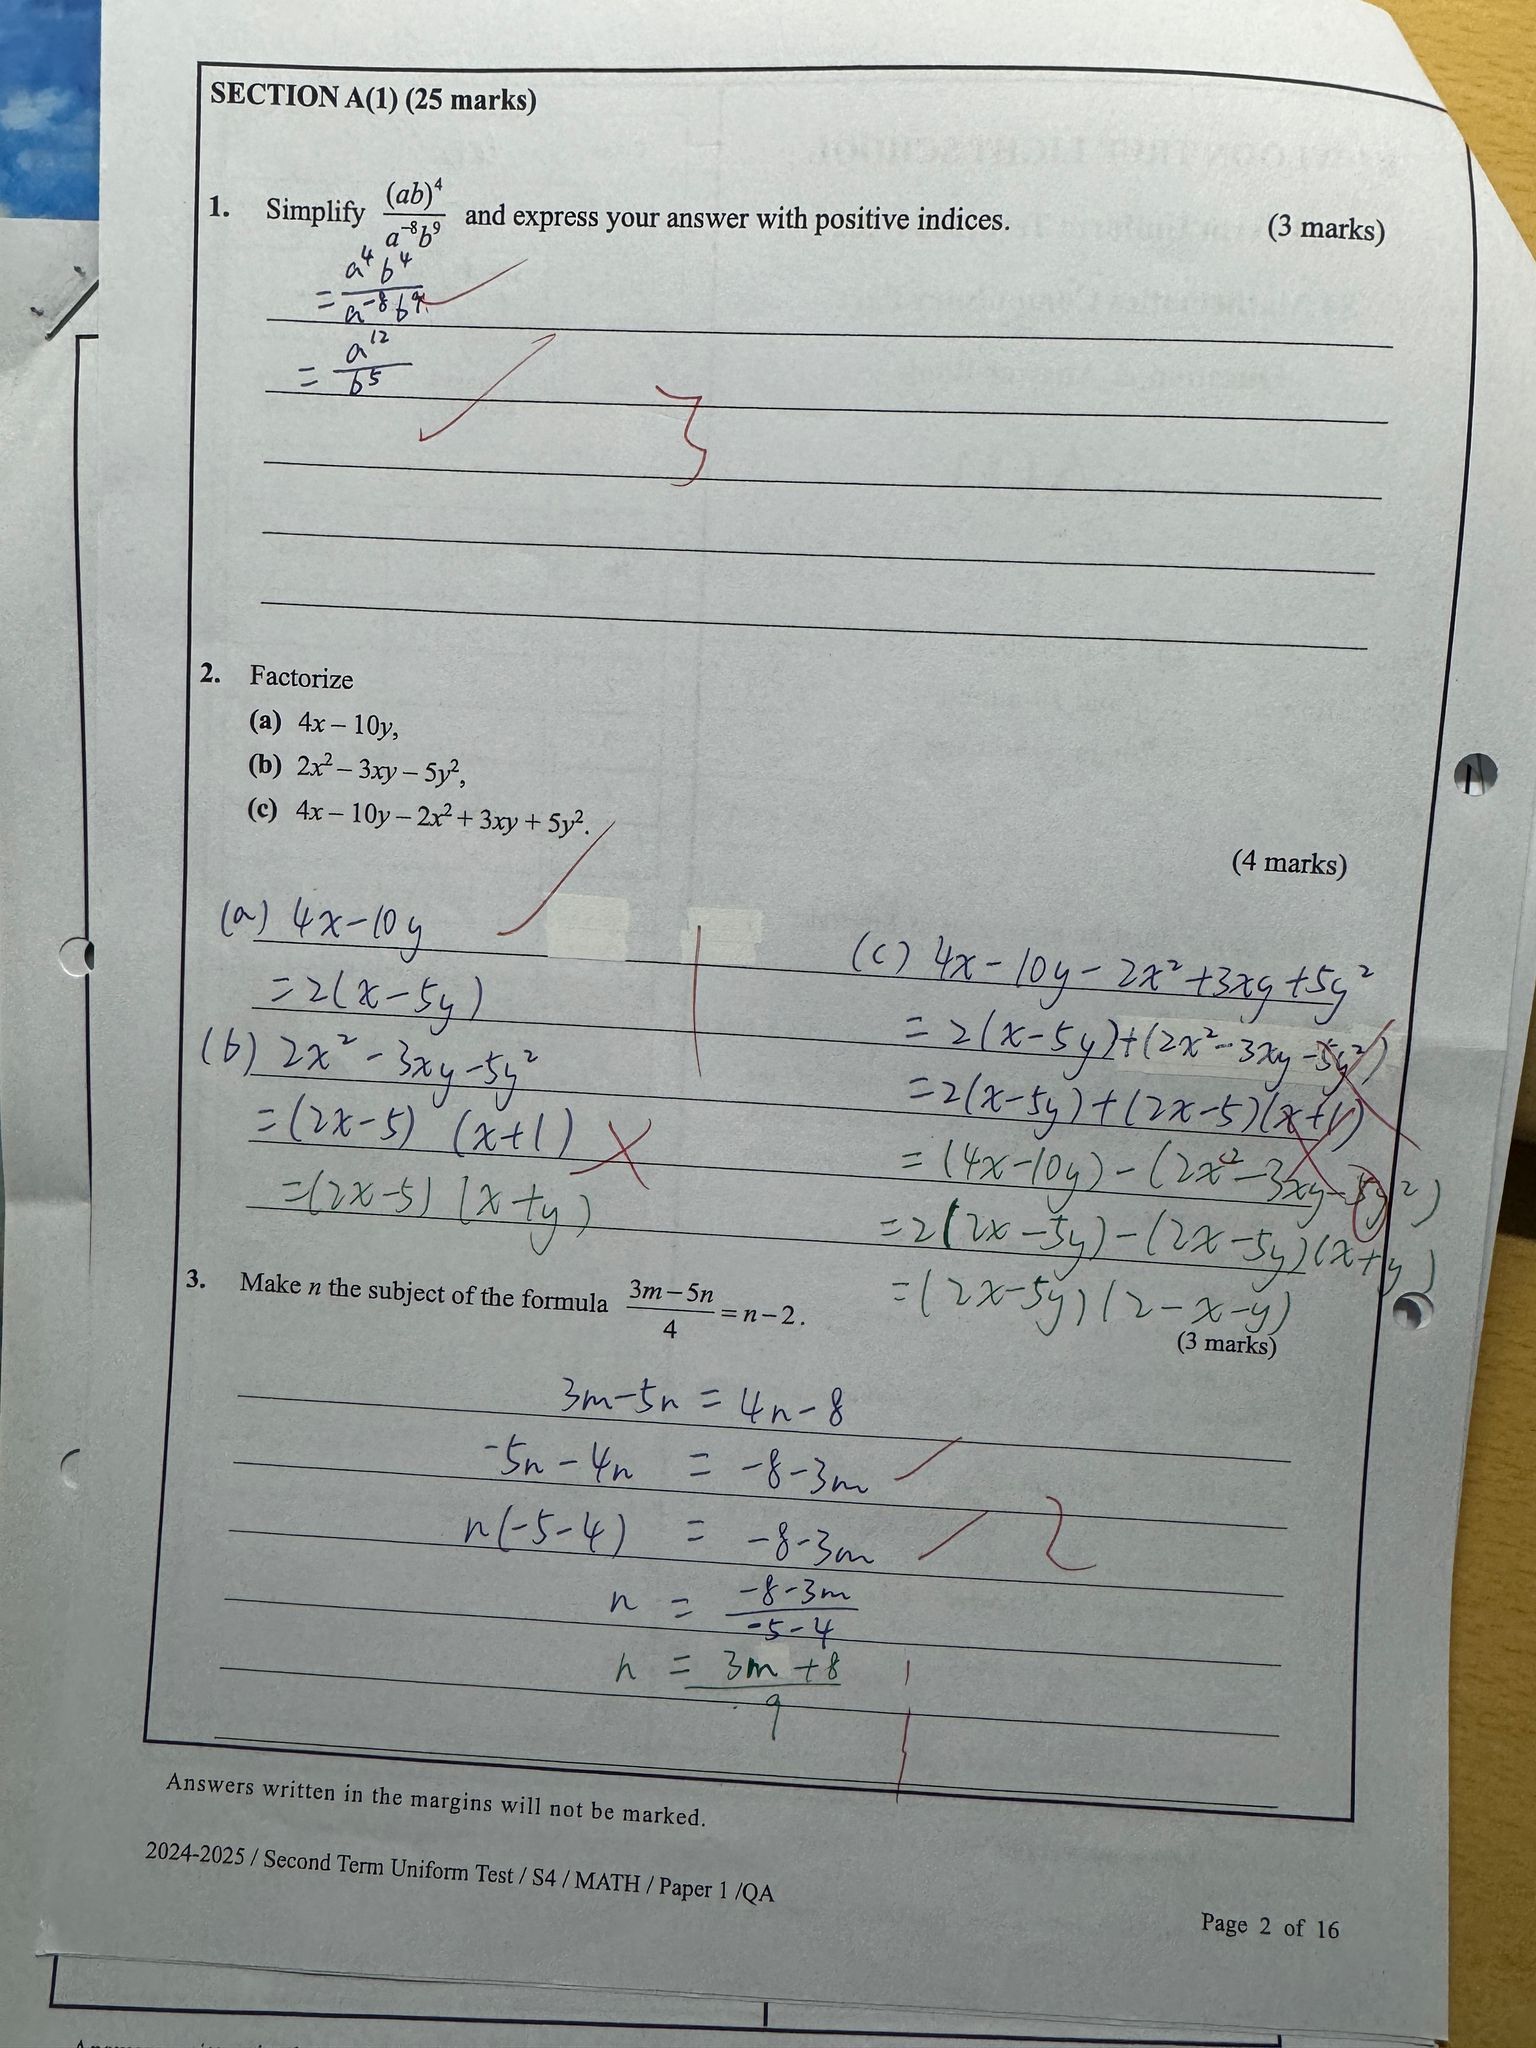 SECTION A(1) (25 marks)
1. Simplify (ab)⁴/a⁻⁸b⁹ and express your answer with positive indices. (3 marks)
= a⁴b⁴/a⁻⁸b⁹
= a¹²/b⁵
3
2. Factorize
(a) 4x – 10y,
(b) 2x² – 3xy – 5y²,
(c) 4x – 10y – 2x² + 3xy + 5y².
(4 marks)
(a) 4x-10y
=2(x-5y)
(b) 2x²-3xy-5y²
=(2x-5) (x+1)
=(2x-5) (x+y)
1
(c) 4x-10y-2x²+3xy+5y²
=2(x-5y)+(2x²-3xy-5y²)
=2(x-5y)+(2x-5)(x+1)
=(4x-10y)-(2x²-3xy-5y²)
=2(2x-5y)-(2x-5y)(x+y)
=(2x-5y)(2-x-y)
3. Make n the subject of the formula (3m – 5n)/4 = n – 2.
(3 marks)
3m-5n = 4n-8
-5n-4n = -8-3m
n(-5-4) = -8-3m
2
n = (-8-3m)/(-5-4)
n = (3m+8)/9
Answers written in the margins will not be marked.
2024-2025 / Second Term Uniform Test / S4 / MATH / Paper 1 /QA
Page 2 of 16